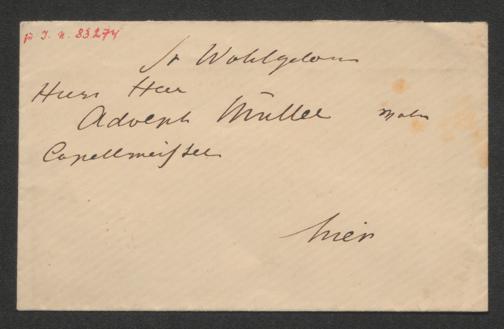 zu I. N. 83274
Sr Wohlgeborn
Herrn Herr
Adolph Müller
Capellmeister
hier